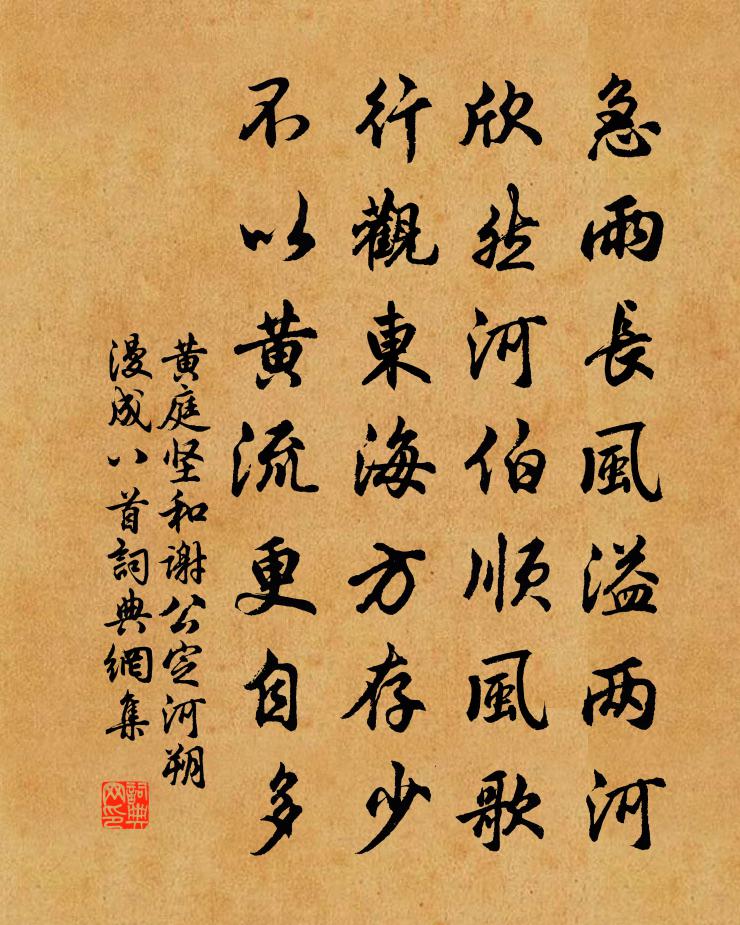 急雨長風溢两河
欣然河伯順風歌
行觀東海方存少
不以黄流更自多
黄庭坚和谢公定河朔
漫成八首詞典網集
詞典网印